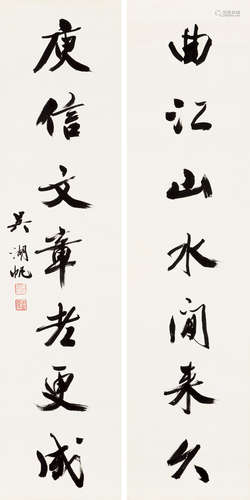 曲江山水聞來久
庾信文章老更成
吳湖帆